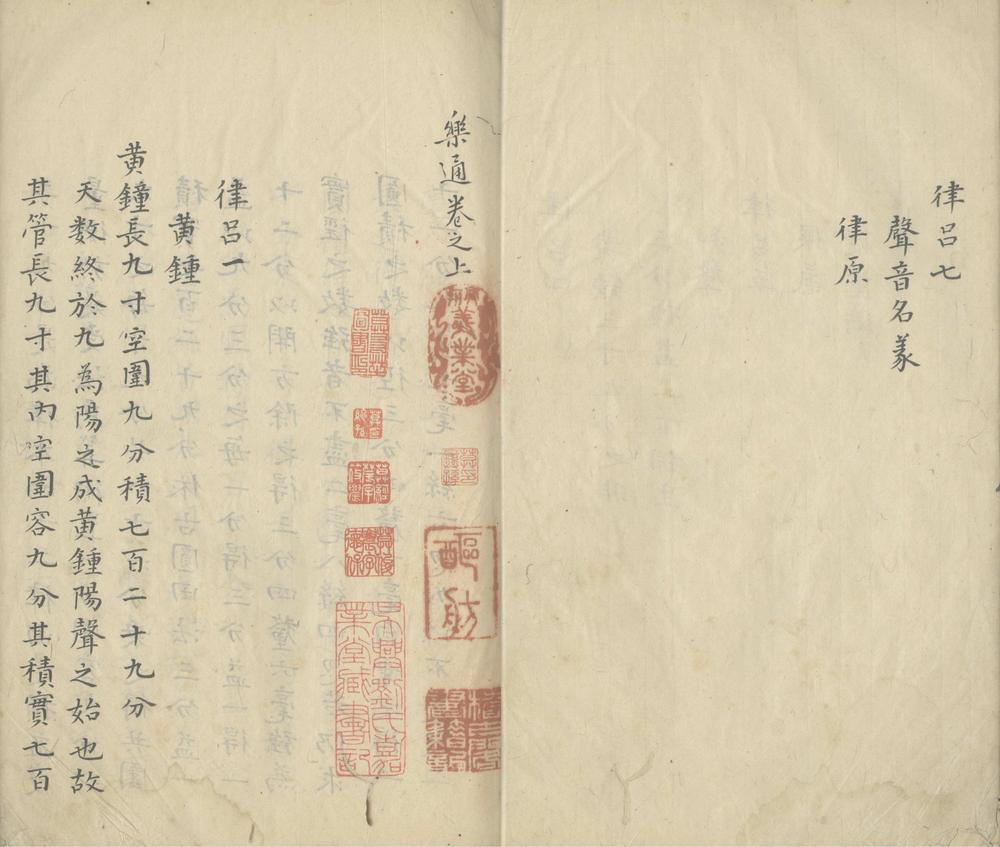 律呂七
聲音名義
律原
樂通卷之上
律呂一
黃鍾
黃鐘長九寸空圍九分積七百二十九分
天數終於九為陽之成黃鍾陽聲之始也故
其管長九寸其內空圍容九分其積實七百
吳興劉氏嘉
業堂藏書記